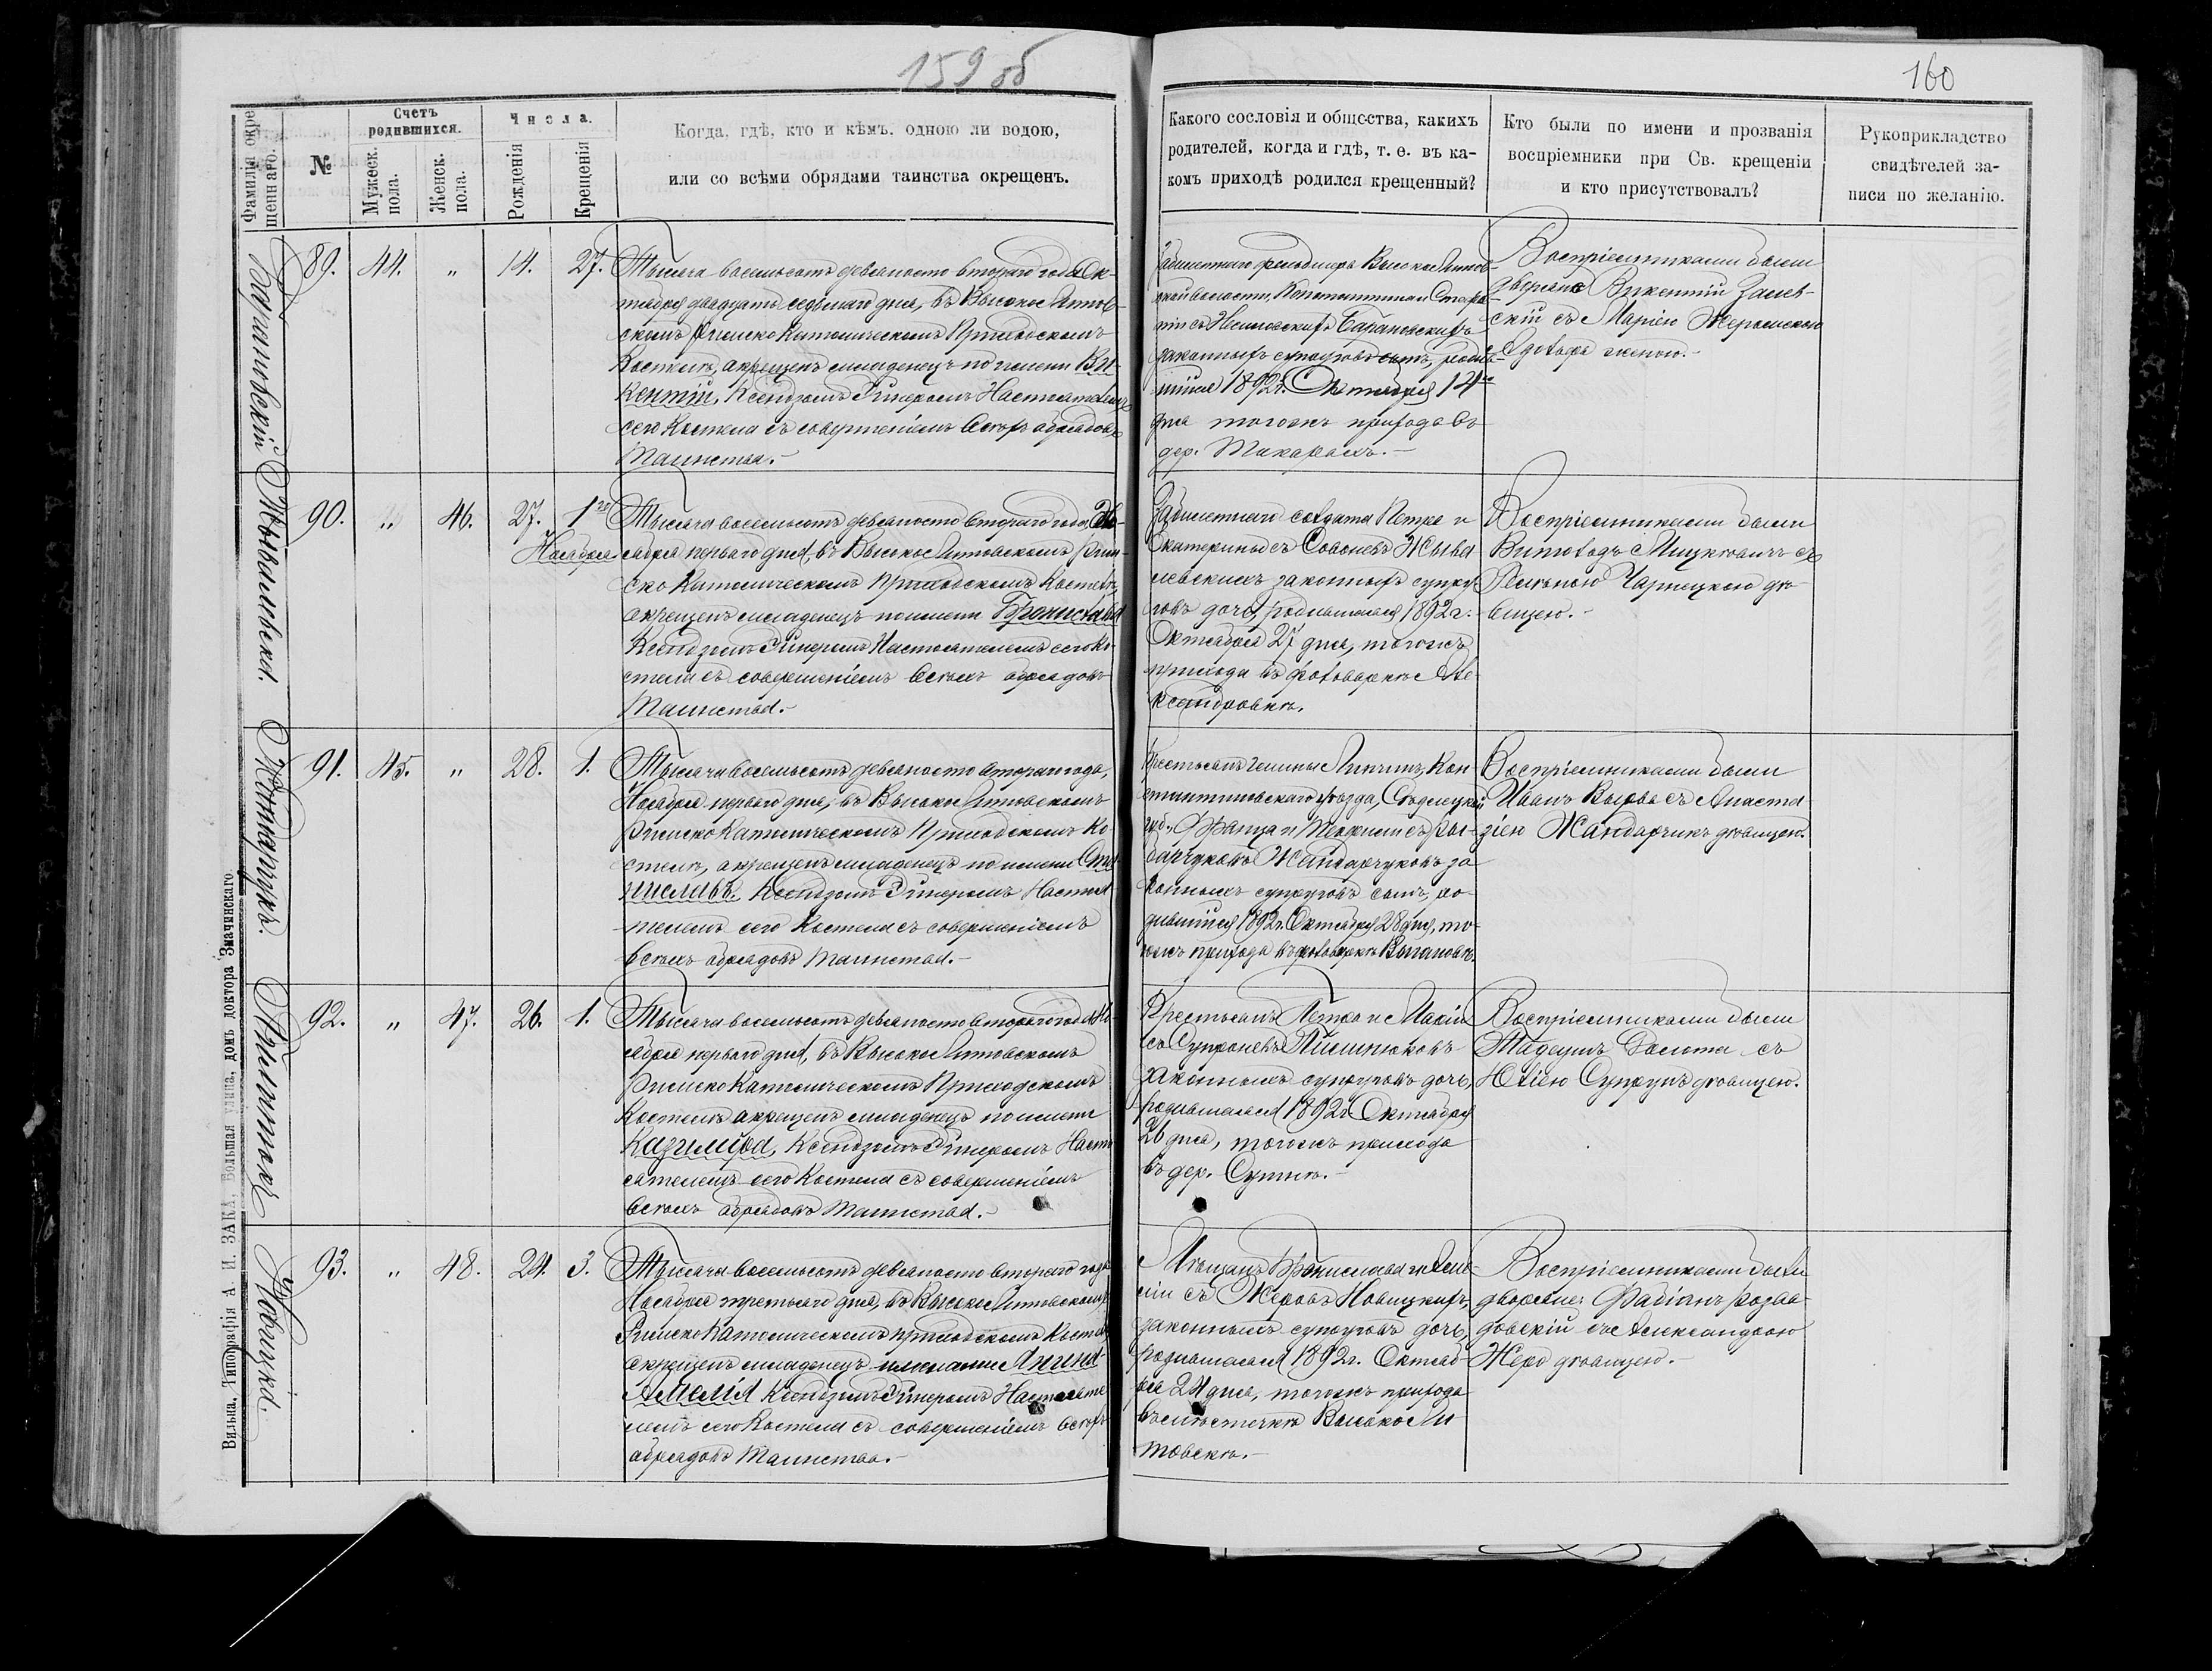 159 об
160
Фамилія окре
щеннаго.
№
Счетъ
родившихся.
Мужеск.
пола.
Женск.
пола.
Числа.
Рожденія
Крещенія
Когда, гдѣ, кто и кѣмъ, одною ли водою,
или со всѣми обрядами таинства окрещенъ.
Какого сословія и общества, какихъ
родителей, когда и гдѣ, т. е. въ ка-
комъ приходѣ родился крещенный?
Кто были по имени и прозванія
воспріемники при Св. крещеніи
и кто присутствовалъ?
Рукоприкладство
свидѣтелей за-
писи по желанію.
Барановскій
89.
44.
"
14.
27.
Тысяча восемьсотъ девяносто второго года Ок-
тября двадцать седьмого дня, въ Высоко Литов-
скомъ Римско Католическомъ Приходскомъ
Костелѣ, окрещенъ младенецъ по имени Ви-
кентій, Ксендзомъ Гинтромъ Настоятелемъ
сего Костела съ совершеніемъ всѣхъ обрядовъ
Таинства.-
фельдшера Высоко Литов-
ской волости, Константина и Стефа-
ніи съ Барановскихъ
законныхъ супруговъ сынъ, родив-
шійся 1892 г. Октября 14го
дня тогожъ прихода въ
дер. Токарахъ.-
Воспріемниками были
дворяне Викентій Залев-
скій съ Маріею Жеромскою
женою.-
90.
"
46.
27.
1го
Ноября
Тысяча восемьсотъ девяносто второго года, Но-
ября первого дня, въ Высоко Литовскомъ Рим-
ско Католическомъ Приходскомъ Костелѣ,
окрещенъ младенецъ по имени Бронислава
Ксендзомъ Гинтромъ Настоятелемъ сего Ко-
стела съ совершеніемъ всѣхъ обрядовъ
Таинства.-
солдата Петра и
Екатерины съ
законныхъ супру-
говъ дочь, родившаяся 1892 г.
Октября 27 дня, тогожъ
прихода въ фольваркѣ Але-
ксандровкѣ.
Воспріемниками были
Витольдъ Мицкевичъ съ
Чарнецкою дѣ-
вицею.-
Жандарчукъ.
91.
45.
"
28.
1.
Тысяча восемьсотъ девяносто второго года,
Ноября первого дня, въ Высоко Литовскомъ
Римско Католическомъ Приходскомъ Ко-
стелѣ, окрещенъ младенецъ по имени Ста-
ниславъ, Ксендзомъ Гинтромъ Настоя-
телемъ сего Костела съ совершеніемъ
всѣхъ обрядовъ Таинства.-
Крестьянъ гмины Кон-
стантиновскаго уѣзда, Сѣдлецкой
губ., Франца и съ Ры-
бачуковъ Жандарчуковъ за-
конныхъ супруговъ сынъ, ро-
дившійся 1892 г. Октября 28 дня, то-
гожъ прихода въ фольваркѣ
Воспріемниками были
Иванъ съ Анаста-
зіею Жандарчукъ дѣвицею.
92.
"
47.
26.
1.
Тысяча восемьсотъ девяносто второго года Но-
ября первого дня, въ Высоко Литовскомъ
Римско Католическомъ Приходскомъ
Костелѣ окрещенъ младенецъ по имени
Казимира, Ксендзомъ Гинтромъ Насто-
ятелемъ сего Костела съ совершеніемъ
всѣхъ обрядовъ Таинства.-
Крестьянъ Петра и Маріи
съ
законныхъ супруговъ дочь,
родившаяся 1892 г. Октября
26 дня, тогожъ прихода
въ дер.
Воспріемниками были
Тадеушъ съ
Юліею Супрунъ дѣвицею.
Новицка.
93.
"
48.
24.
3.
Тысяча восемьсотъ девяносто второго года
Ноября третьяго дня, въ Высоко Литовскомъ
Римско Католическомъ приходскомъ Костелѣ
окрещенъ младенецъ именами Янина-
Амелія Ксендзомъ Гинтромъ Настояте-
лемъ сего Костела съ совершеніемъ всѣхъ
обрядовъ Таинства.-
Мѣщанъ Бронислава и Аме-
ліи съ Жеровъ Новицкихъ,
законныхъ супруговъ дочь,
родившаяся 1892 г. Октяб-
ря 24 дня, тогожъ прихода
въ мѣстечкѣ Высоко Ли-
товскѣ.-
Воспріемниками были
дворяне: Фабіанъ
съ Александрою
Жеро дѣвицею.-
Вильна, Типографія А. И. ЗАКА, Большая улица, домъ доктора Значинскаго